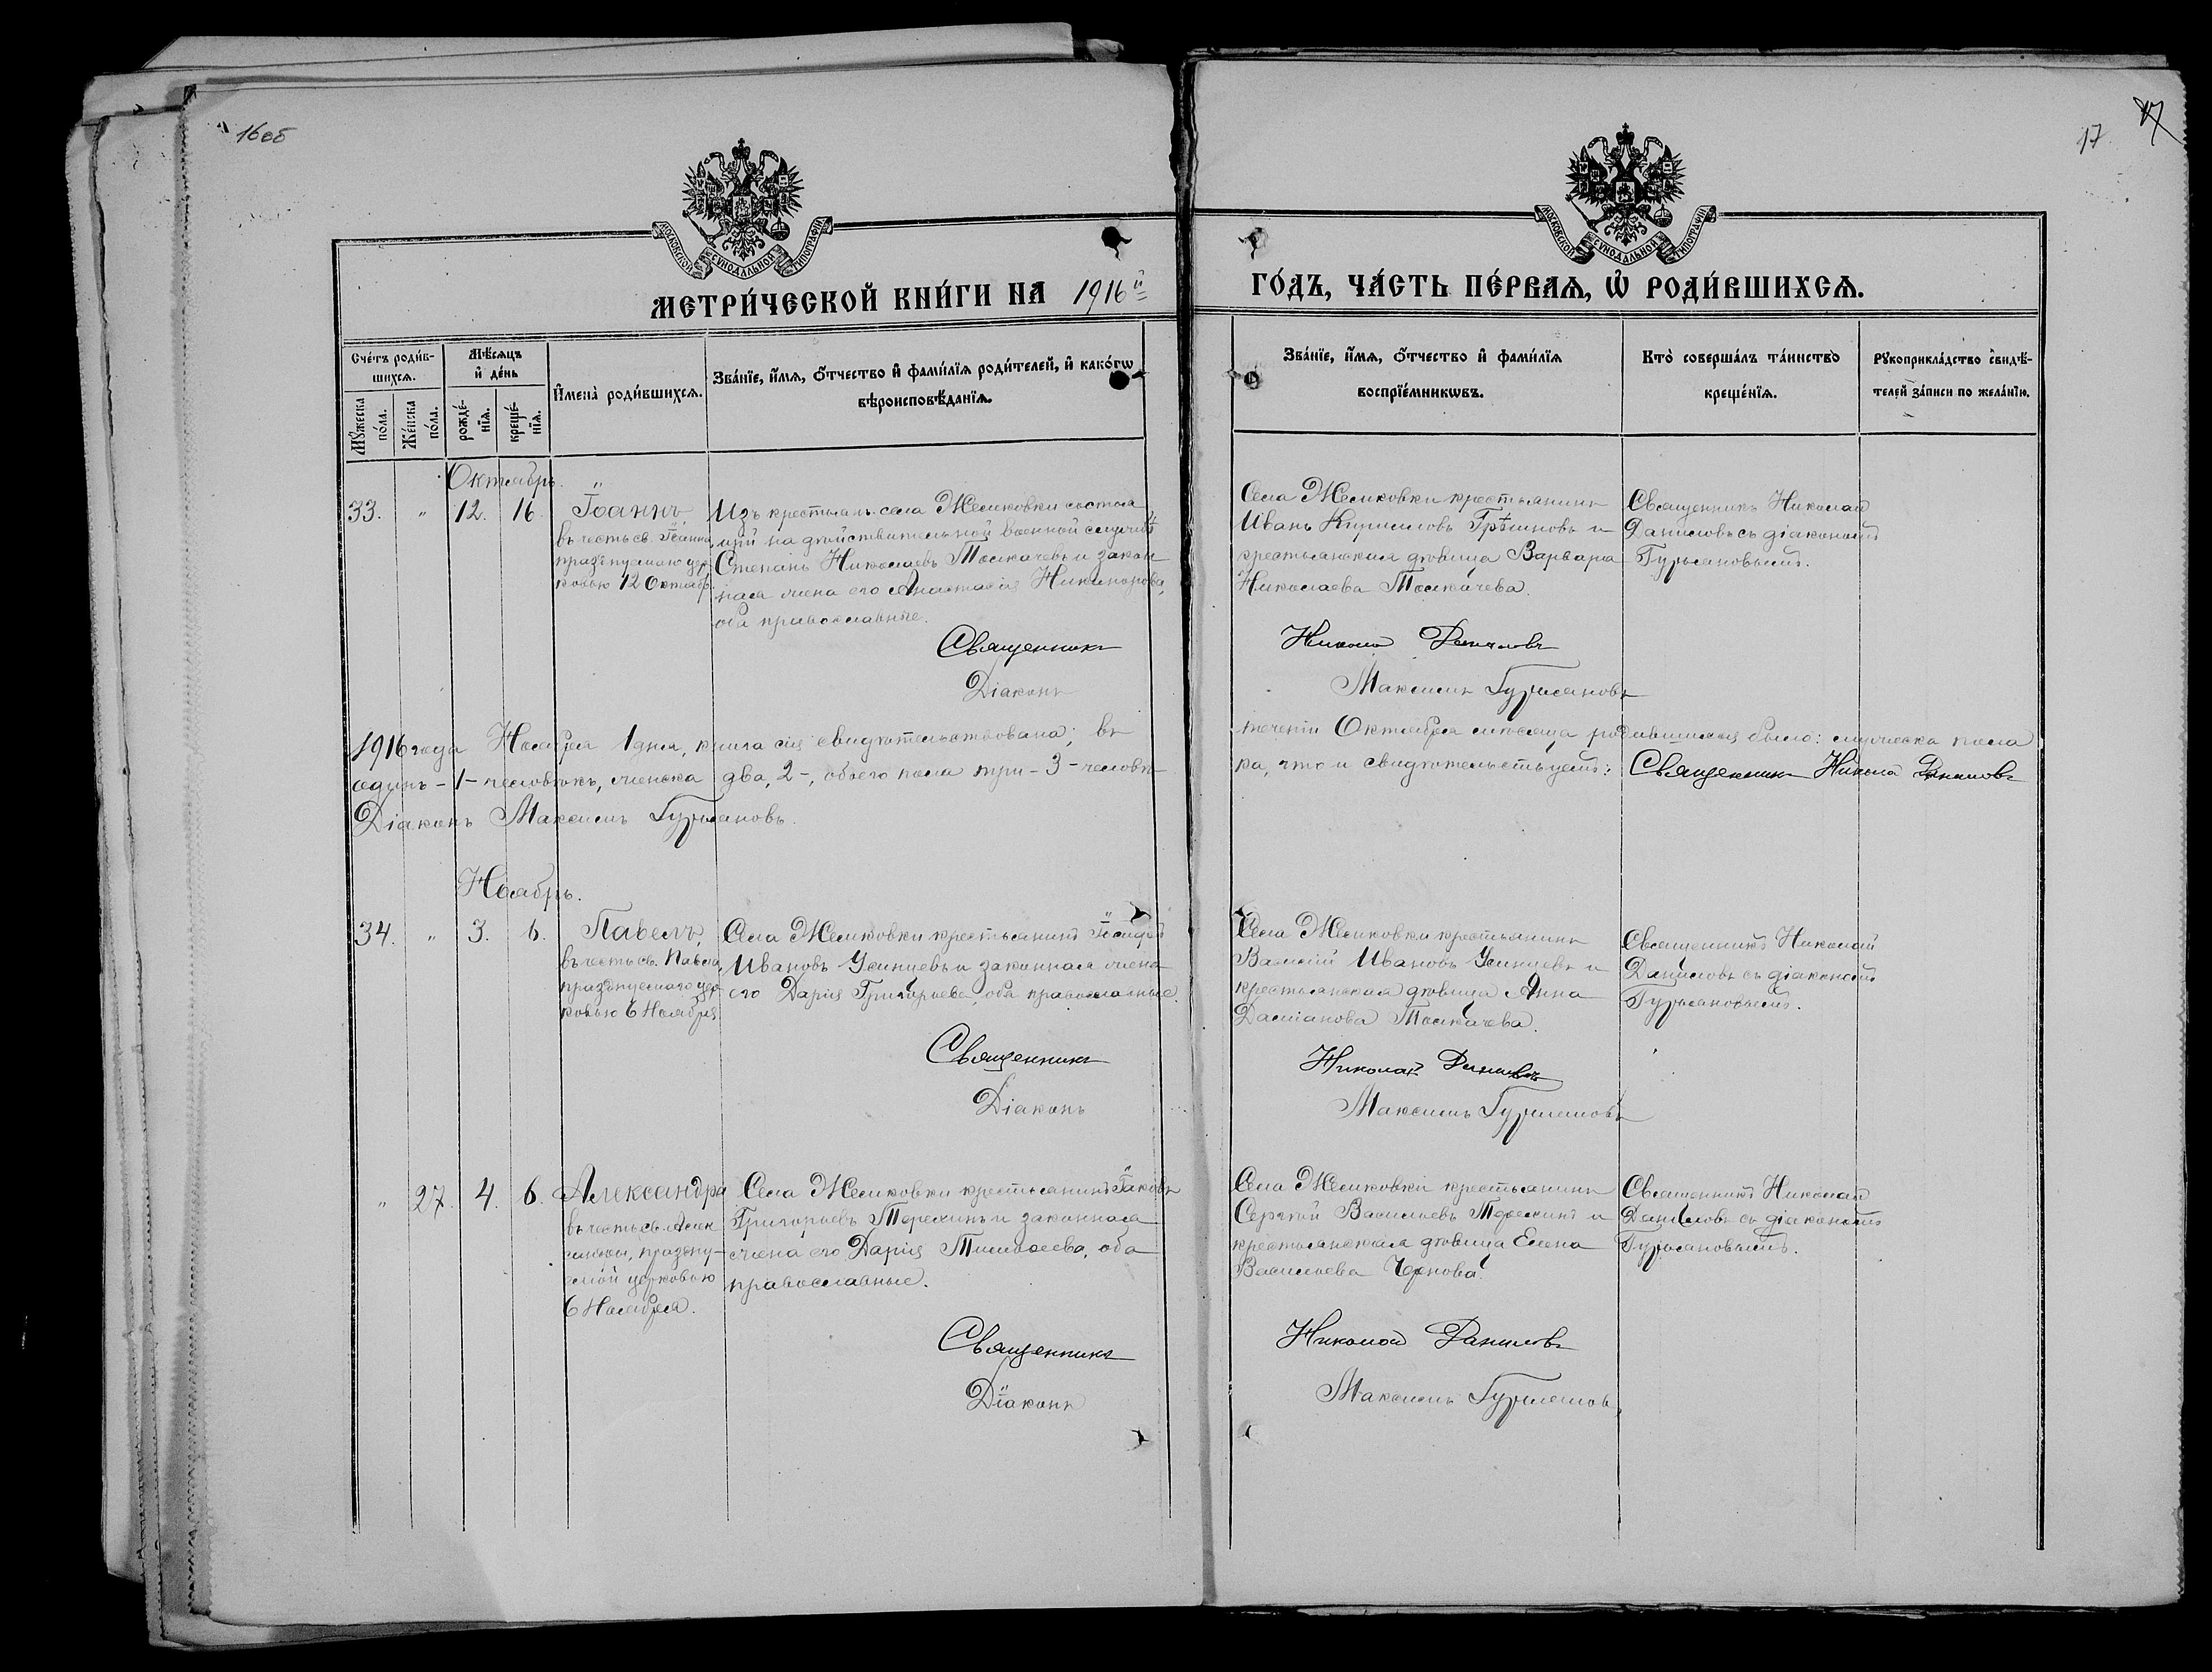 16 об
17
17
МОСКОВСКОЙ СУНОДАЛЬНОЙ ТИПОГРАФІИ
МОСКОВСКОЙ СУНОДАЛЬНОЙ ТИПОГРАФІИ
МЕТРИ́ЧЕСКОЙ КНИ́ГИ НА 1916й
ГО́ДЪ, ЧА́СТЬ ПЕ́РВАѦ, Ѡ҆ РОДИ́ВШИХСѦ.
Сче́тъ роди́в-
шихсѧ.
Мѣ́сѧцъ
и҆ де́нь
И҆мена̀ роди́вшихсѧ.
Зва́нїе, и҆́мѧ, ѻ҆́тчество и҆ фами́лїѧ роди́телей, и҆ како́гѡ
вѣроисповѣ́данїѧ.
Мꙋ́жеска
по́ла.
Же́нска
по́ла.
рожде́-
нїѧ.
креще́-
нїѧ.
Зва́нїе, и҆́мѧ, ѻ҆́тчество и҆ фами́лїѧ
воспрїе́мникѡвъ.
Кто̀ соверша́лъ та́инство
креще́нїѧ.
Рꙋкоприкла́дство свидѣ́-
телей за́писи по жела́нїю.
Октябрь.
33. " 12. 16. Іоаннъ
въ честь св. Іоанна,
празднуемаго цер-
ковью 12 Октябр.
Изъ крестьянъ села Жемковки состоя
щій на дѣйствительной военной службѣ
Степанъ Николаевъ Толкачевъ и закон
ная жена его Анастасія Никанорова,
оба православные.
Священникъ
Діаконъ
Села Жемковки крестьянинъ
Иванъ Кирилловъ Грѣшновъ и
крестьянская дѣвица Варвара
Николаева Толкачева.
Николай Даниловъ
Максимъ Гурьяновъ
Священникъ Николай
Даниловъ съ діакономъ
Гурьяновымъ.
1916 года Ноября 1 дня, книга сія свидѣтельствована; въ
теченіи Октября мѣсяца родившихся было: мужеска пола
одинъ - 1 - человѣкъ, женска два, 2 -, обоего пола три - 3 - человѣ-
ка, что и свидѣтельствуемъ: Священникъ Николай Даниловъ
Діаконъ Максимъ Гурьяновъ.
Ноябрь.
34. " 3. 6. Павелъ,
въ честь св. Павла,
празднуемаго цер-
ковью 6 Ноября
Села Жемковки крестьянинъ Іосифъ
Ивановъ Усинцевъ и законная жена
его Дарія Григорьева, оба православные.
Священникъ
Діаконъ
Села Жемковки крестьянинъ
Василій Ивановъ Усинцевъ и
крестьянская дѣвица Анна
Даміанова Толкачева.
Николай Даниловъ
Максимъ Гурьяновъ
Священникъ Николай
Даниловъ съ діакономъ
Гурьяновымъ.
" 27. 4. 6. Александра
въ честь св. Алек
сандры, праздну-
емой церковью
6 Ноября.
Села Жемковки крестьянинъ Іаковъ
Григорьевъ Терехинъ и законная
жена его Дарія Тимоѳеева, оба
православные.
Священникъ
Діаконъ
Села Жемковки крестьянинъ
Сергѣй Васильевъ Терехинъ и
крестьянская дѣвица Елена
Васильева Чернова.
Николай Даниловъ
Максимъ Гурьяновъ
Священникъ Николай
Даниловъ съ діакономъ
Гурьяновымъ.